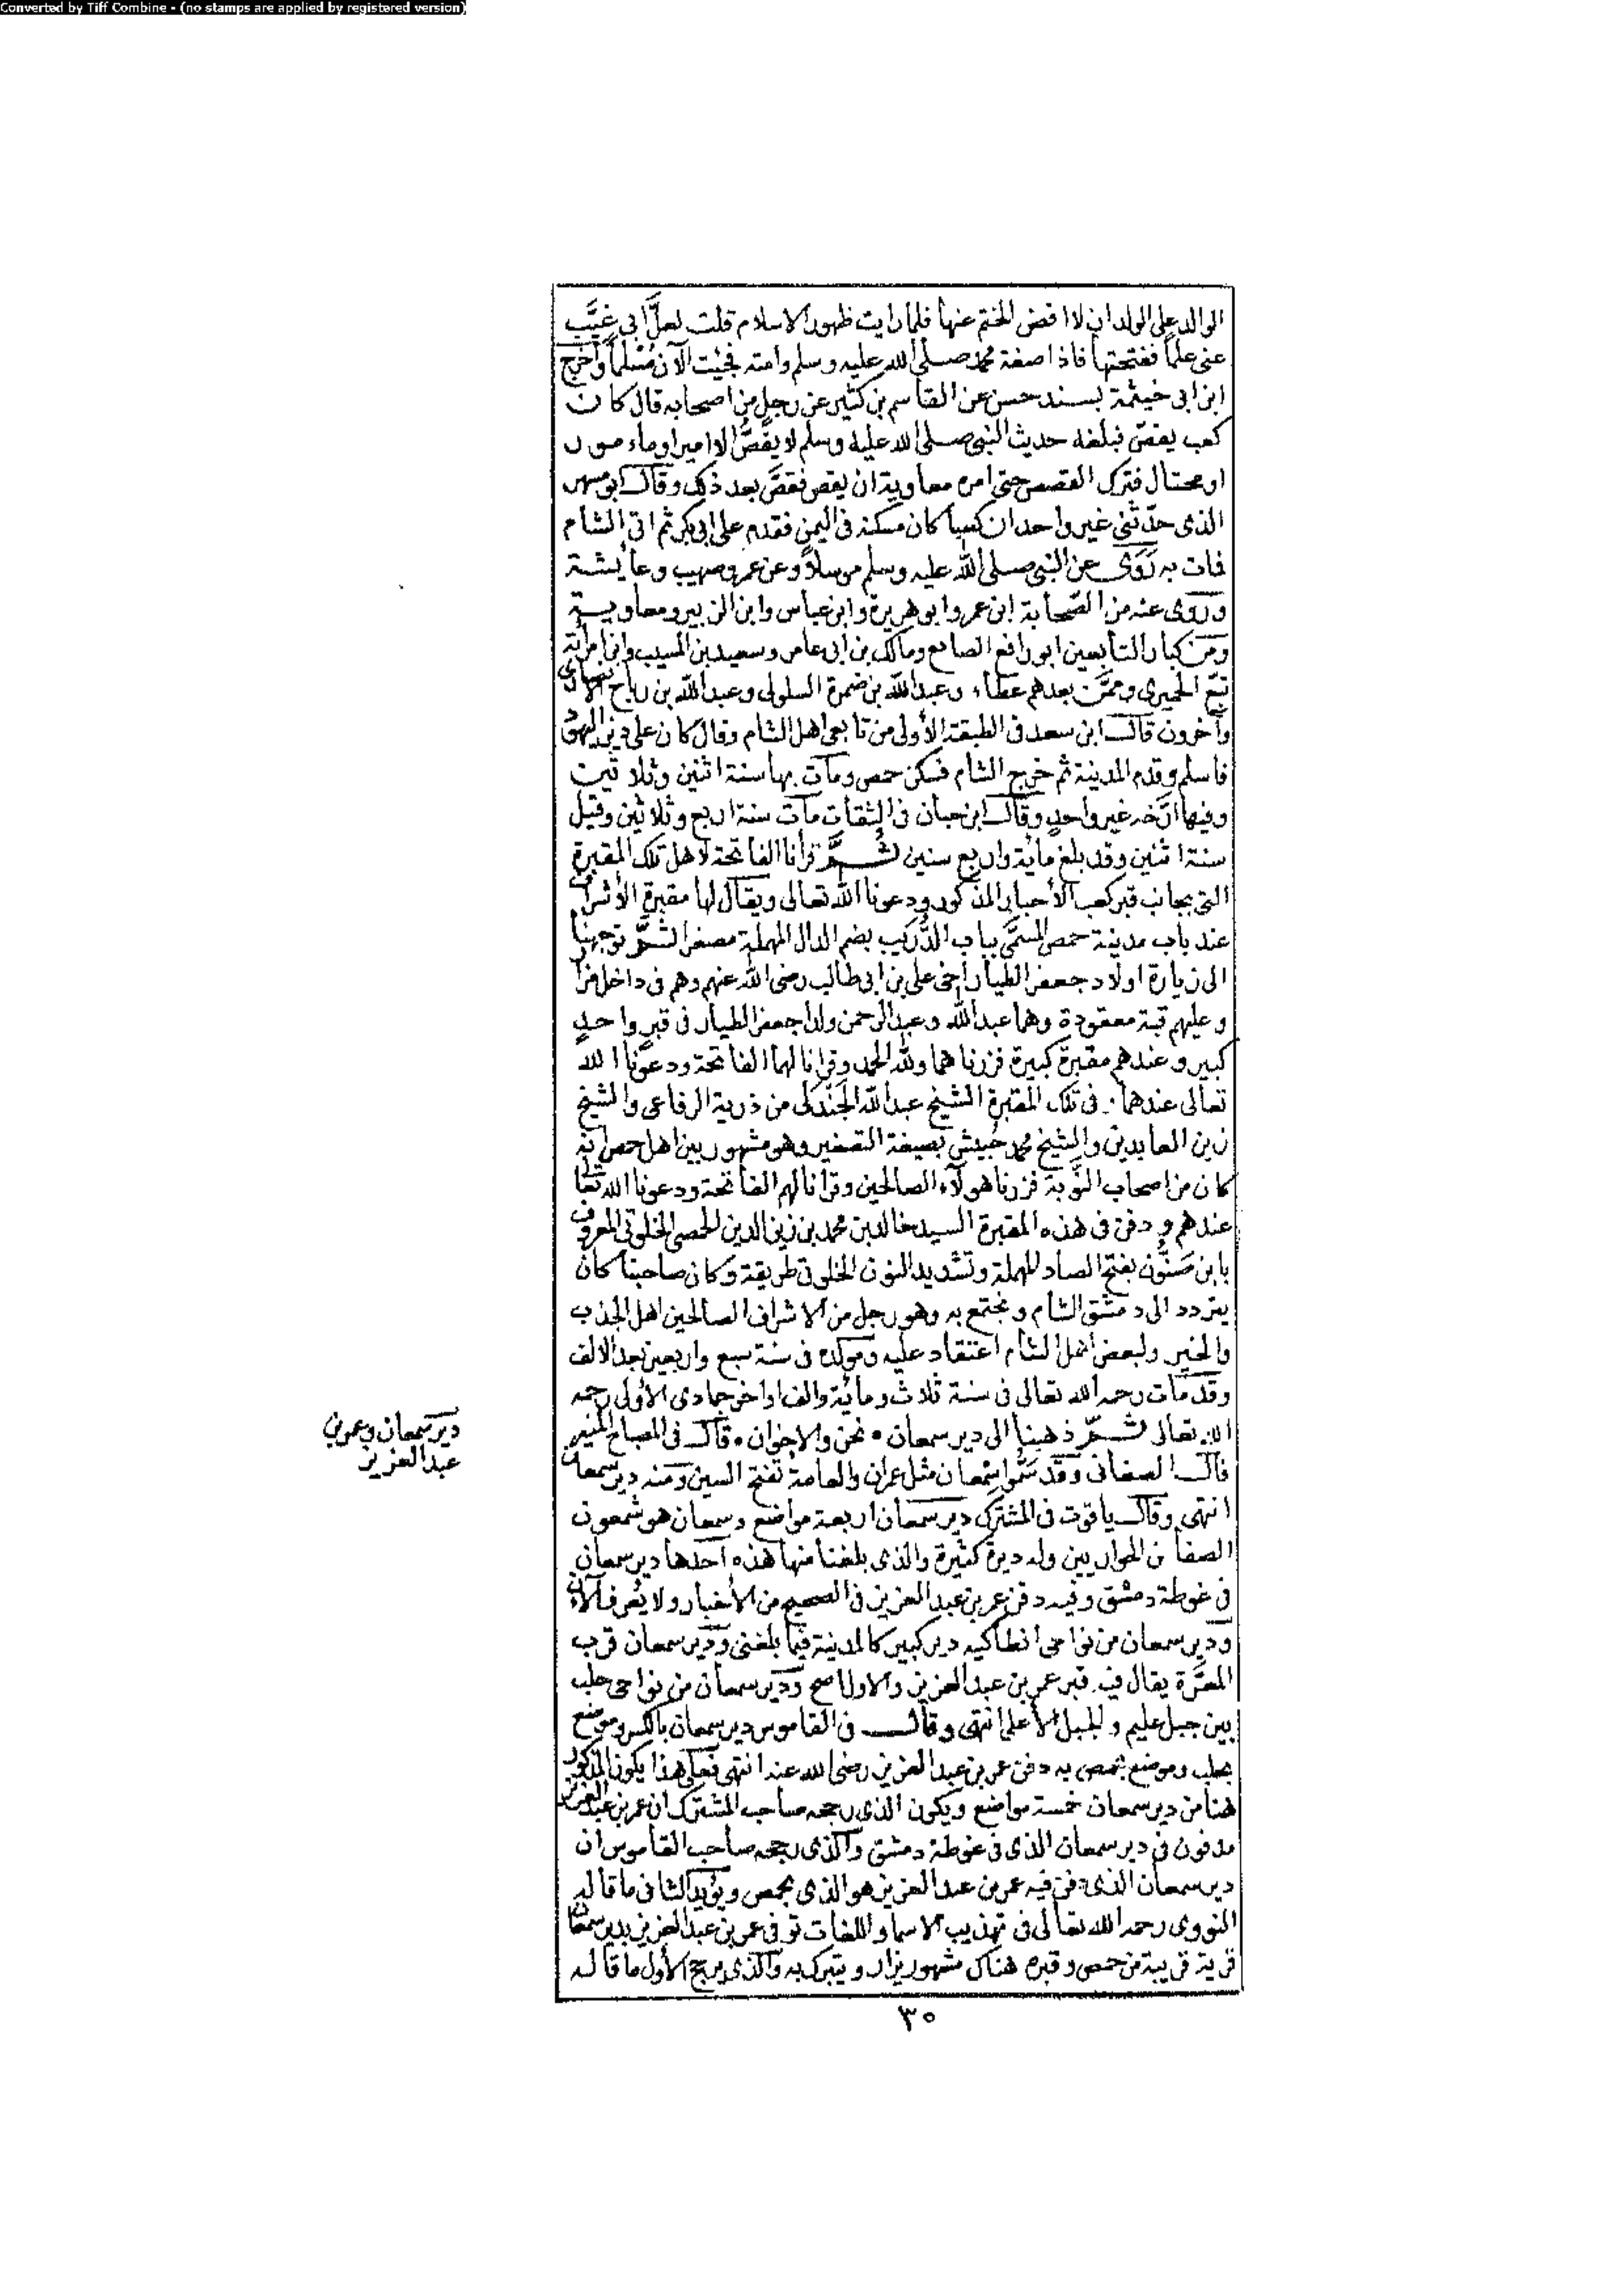 Converted by Tiff Combine - (no stamps are applied by registered version)
الوالد على الولد ان لا افض الختم عنها فلما رايت ظهور الاسلام قلت لعلّ ابي غيّب
عني علما ففتحتها فاذا صفة محمد صلى الله عليه وسلم وامته فجئت الآن مُسْلما وأخرج
ابن ابى خيثمة بسند حسن عن القاسم بن كثير عن رجل من اصحابه قال كان
كعب يقصّ فبلغه حديث النبي صلى الله عليه وسلم لا يقُصُّ الا امير او مامور
او محتال فترك القصص حتى امره معاوية ان يقص فقصَّ بعد ذلك وقال ابو مسهر
الذى حدّثنى غير واحد ان كعبا كان مسكنه فى اليمن فقدم على ابى بكر ثم اتى الشام
فمات به رَوَى عن النبي صلى الله عليه وسلم مرسلاً وعن عمر وصهيب وعائشة
وروى عنه من الصّحابة ابن عمر وابو هريرة وابن عباس وابن الزبير ومعاوية
ومن كبار التابعين ابو رافع الصايغ ومالك بن ابى عامر وسعيد بن المسيب وابن امرأته
تبّع الحميرى وممّن بعدهم عطاء وعبد الله بن ضمرة السلولى وعبد الله بن رباح الانصارى
وآخرون قال ابن سعد فى الطبقة الأولى من تابعى اهل الشام وقال كان على دين اليهود
فاسلم وقدم المدينة ثم خرج الشام فسكن حمص ومات بها سنة اثنين وثلاثين
وفيها ارّخه غير واحدٍ وقال ابن حبان فى الثقات مات سنة اربع وثلاثين وقيل
سنة اثنين وقد بلغ مائة واربع سنين ثُمَّ قرأنا الفاتحة لاهل تلك المقبرة
التى بجانب قبر كعب الأحبار المذكور ودعونا الله تعالى ويقال لها مقبرة الأشراف
عند باب مدينة حمص المسمَّى بباب الدُّرَيب بضم الدال المهملة مصغرا ثُمَّ توجهنا
الى زيارة اولاد جعفر الطيار أخى على بن ابى طالب رضى الله عنهم وهم فى داخل مزار
وعليهم قبة معقودة وهما عبد الله وعبد الرحمن ولدا جعفر الطيار فى قبر واحدٍ
كبير وعندهم مقبرة كبيرة فزرناهما ولله الحمد وقرانا لهما الفاتحة ودعونا الله
تعالى عندهما. فى تلك المقبرة الشيخ عبد الله الجَنْدَلى من ذرية الرفاعى والشيخ
زين العابدين والشيخ محمد حُبيش بصيغة التصغير وهو مشهور بين اهل حمص انه
كان من اصحاب النَّوبة فزرنا هولآء الصالحين وقرانا لهم الفاتحة ودعونا الله تعالى
عندهم ودفن فى هذه المقبرة السيد خالد بن محمد بن زين الدين الحمصى الخلوتى المعروف
بابن صَنُّون بفتح الصاد المهملة وتشديد النون الخلوتى طريقة وكان صاحبنا كان
يتردد الى دمشق الشام ونجتمع به وهو رجل من الاشراف الصالحين اهل الجذب
والخير ولبعض اهل الشام اعتقاد عليه ومولده فى سنة سبع واربعين بعد الالف
وقد مات رحمه الله تعالى فى سنة ثلاث ومائة والف اواخر جمادى الأولى رحمه
الله تعالى ثُمَّ ذهبنا الى دير سمعان • نحن والاخوان • قال فى المصباح المنير
قال الصغانى وقد سَمَّوا سِمْعان مثل عمران والعامة تفتح السين ومنه دير سمعان
انتهى وقال ياقوت فى المشترك دير سمعان اربعة مواضع وسمعان هو شمعون
الصفا من الحواريين وله ديرة كثيرة والذى بلغنا منها هذه أحدها دير سمعان
فى غوطة دمشق وفيه دفن عمر بن عبد العزيز فى الصحيح من الأخبار ولا يُعرف الآن
ودير سمعان من نواحى انطاكيه دير كبير كالمدينة فيما بلغنى ودير سمعان قرب
المعرَّة يقال فيه قبر عمر بن عبد العزيز والاول اصح ودير سمعان من نواحى حلب
بين جبل عليم والجبل الأعلى انتهى وقال فى القاموس دير سمعان بالكسر موضع
بحلب وموضع بحمص به دفن عمر بن عبد العزيز رضى الله عنه انتهى فعلى هذا يكون المذكور
هنا من دير سمعان خمسة مواضع ويكون الذى رجحه صاحب المشترك ان عمر بن عبد العزيز
مدفون فى دير سمعان الذى فى غوطة دمشق والذى رجحه صاحب القاموس ان
دير سمعان الذى دفن فيه عمر بن عبد العزيز هو الذى بحمص ويؤيد الثانى ما قاله
النووى رحمه الله تعالى فى تهذيب الاسما واللغات توفى عمر بن عبد العزيز بدير سمعان
قرية قريبة من حمص وقبره هناك مشهور يزار ويتبرك به والذى يرجح الأول ما قاله
دير سمعان وعمر بن
عبد العزيز
٣٠